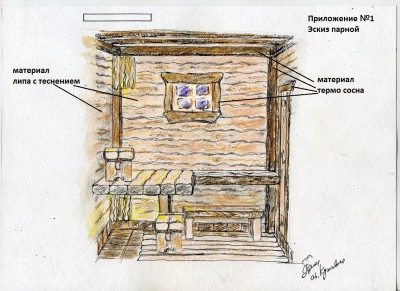 Приложение №1
Эскиз парной
материал
липа с теснением
материал
термо сосна